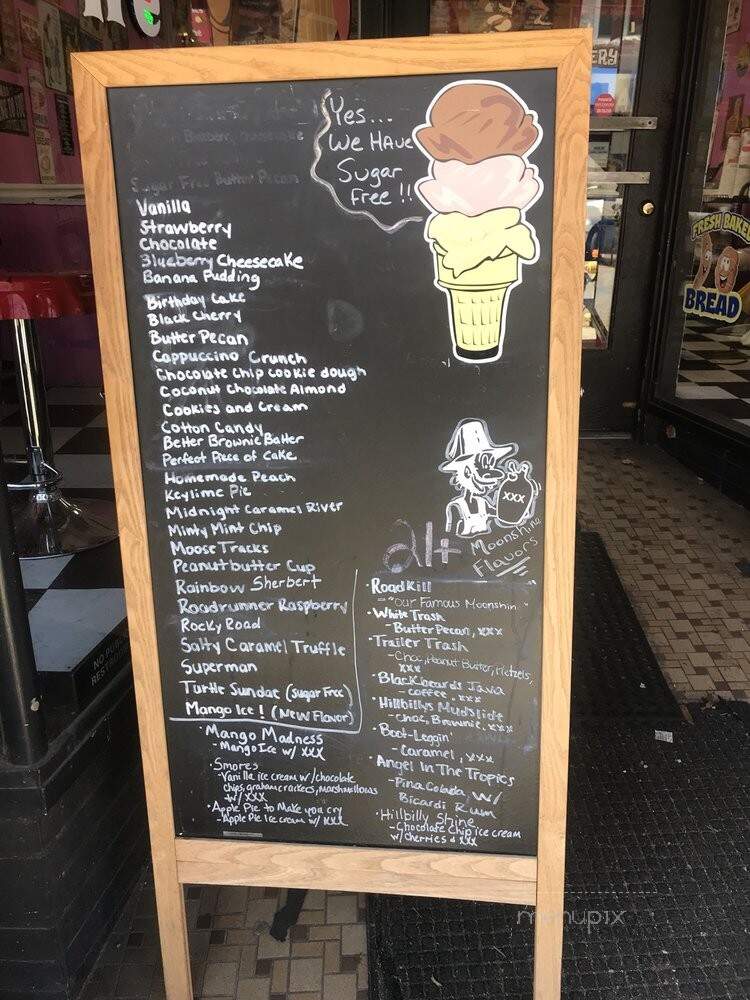 Yes...
We Have
Sugar
Free !!
Sugar Free Butter Pecan
Vanilla
Strawberry
Chocolate
Blueberry Cheesecake
Banana Pudding
Birthday Cake
Black Cherry
Butter Pecan
Cappuccino Crunch
Chocolate Chip cookie dough
Coconut Chocolate Almond
Cookies and Cream
Cotton Candy
Better Brownie Batter
Perfect Piece of Cake
Homemade Peach
Keylime Pie
Midnight Caramel River
Minty Mint Chip
Moose Tracks
Peanutbutter Cup
Rainbow Sherbert
Roadrunner Raspberry
Rocky Road
Salty Caramel Truffle
Superman
Turtle Sundae (Sugar Free)
Mango Ice! (New Flavor)
• Mango Madness
- Mango Ice w/ XXX
• Smores
- Vanilla ice cream w/chocolate
chips, graham crackers, marshmallows
w/ XXX
• Apple Pie to Make you cry
- Apple Pie Ice cream w/ XXX
XXX
21+ Moonshine
Flavors
• RoadKill
- "Our Famous Moonshin.."
• White Trash
- Butter Pecan, xxx
• Trailer Trash
- Choc, Peanut Butter, Pretzels,
xxx
• Blackbeards Java
- coffee, xxx
• Hillbillys Mudslide
- choc, Brownie, xxx
• Boot-Leggin'
- Caramel, xxx
• Angel In The Tropics
- Pina Colada, w/
Bicardi Rum
• Hillbilly Shine
- Chocolate Chip ice cream
w/ Cherries & XXX
FRESH BAKED
BREAD
menupix